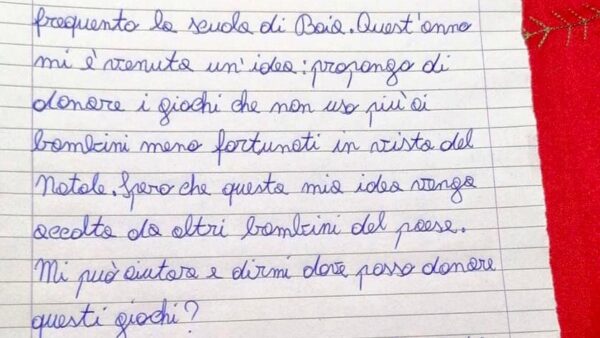 frequento la scuola di Baia. Quest'anno
mi è venuta un'idea: propongo di
donare i giochi che non uso più ai
bambini meno fortunati in vista del
Natale. Spero che questa mia idea venga
accolta da altri bambini del paese.
Mi può aiutare e dirmi dove posso donare
questi giochi?